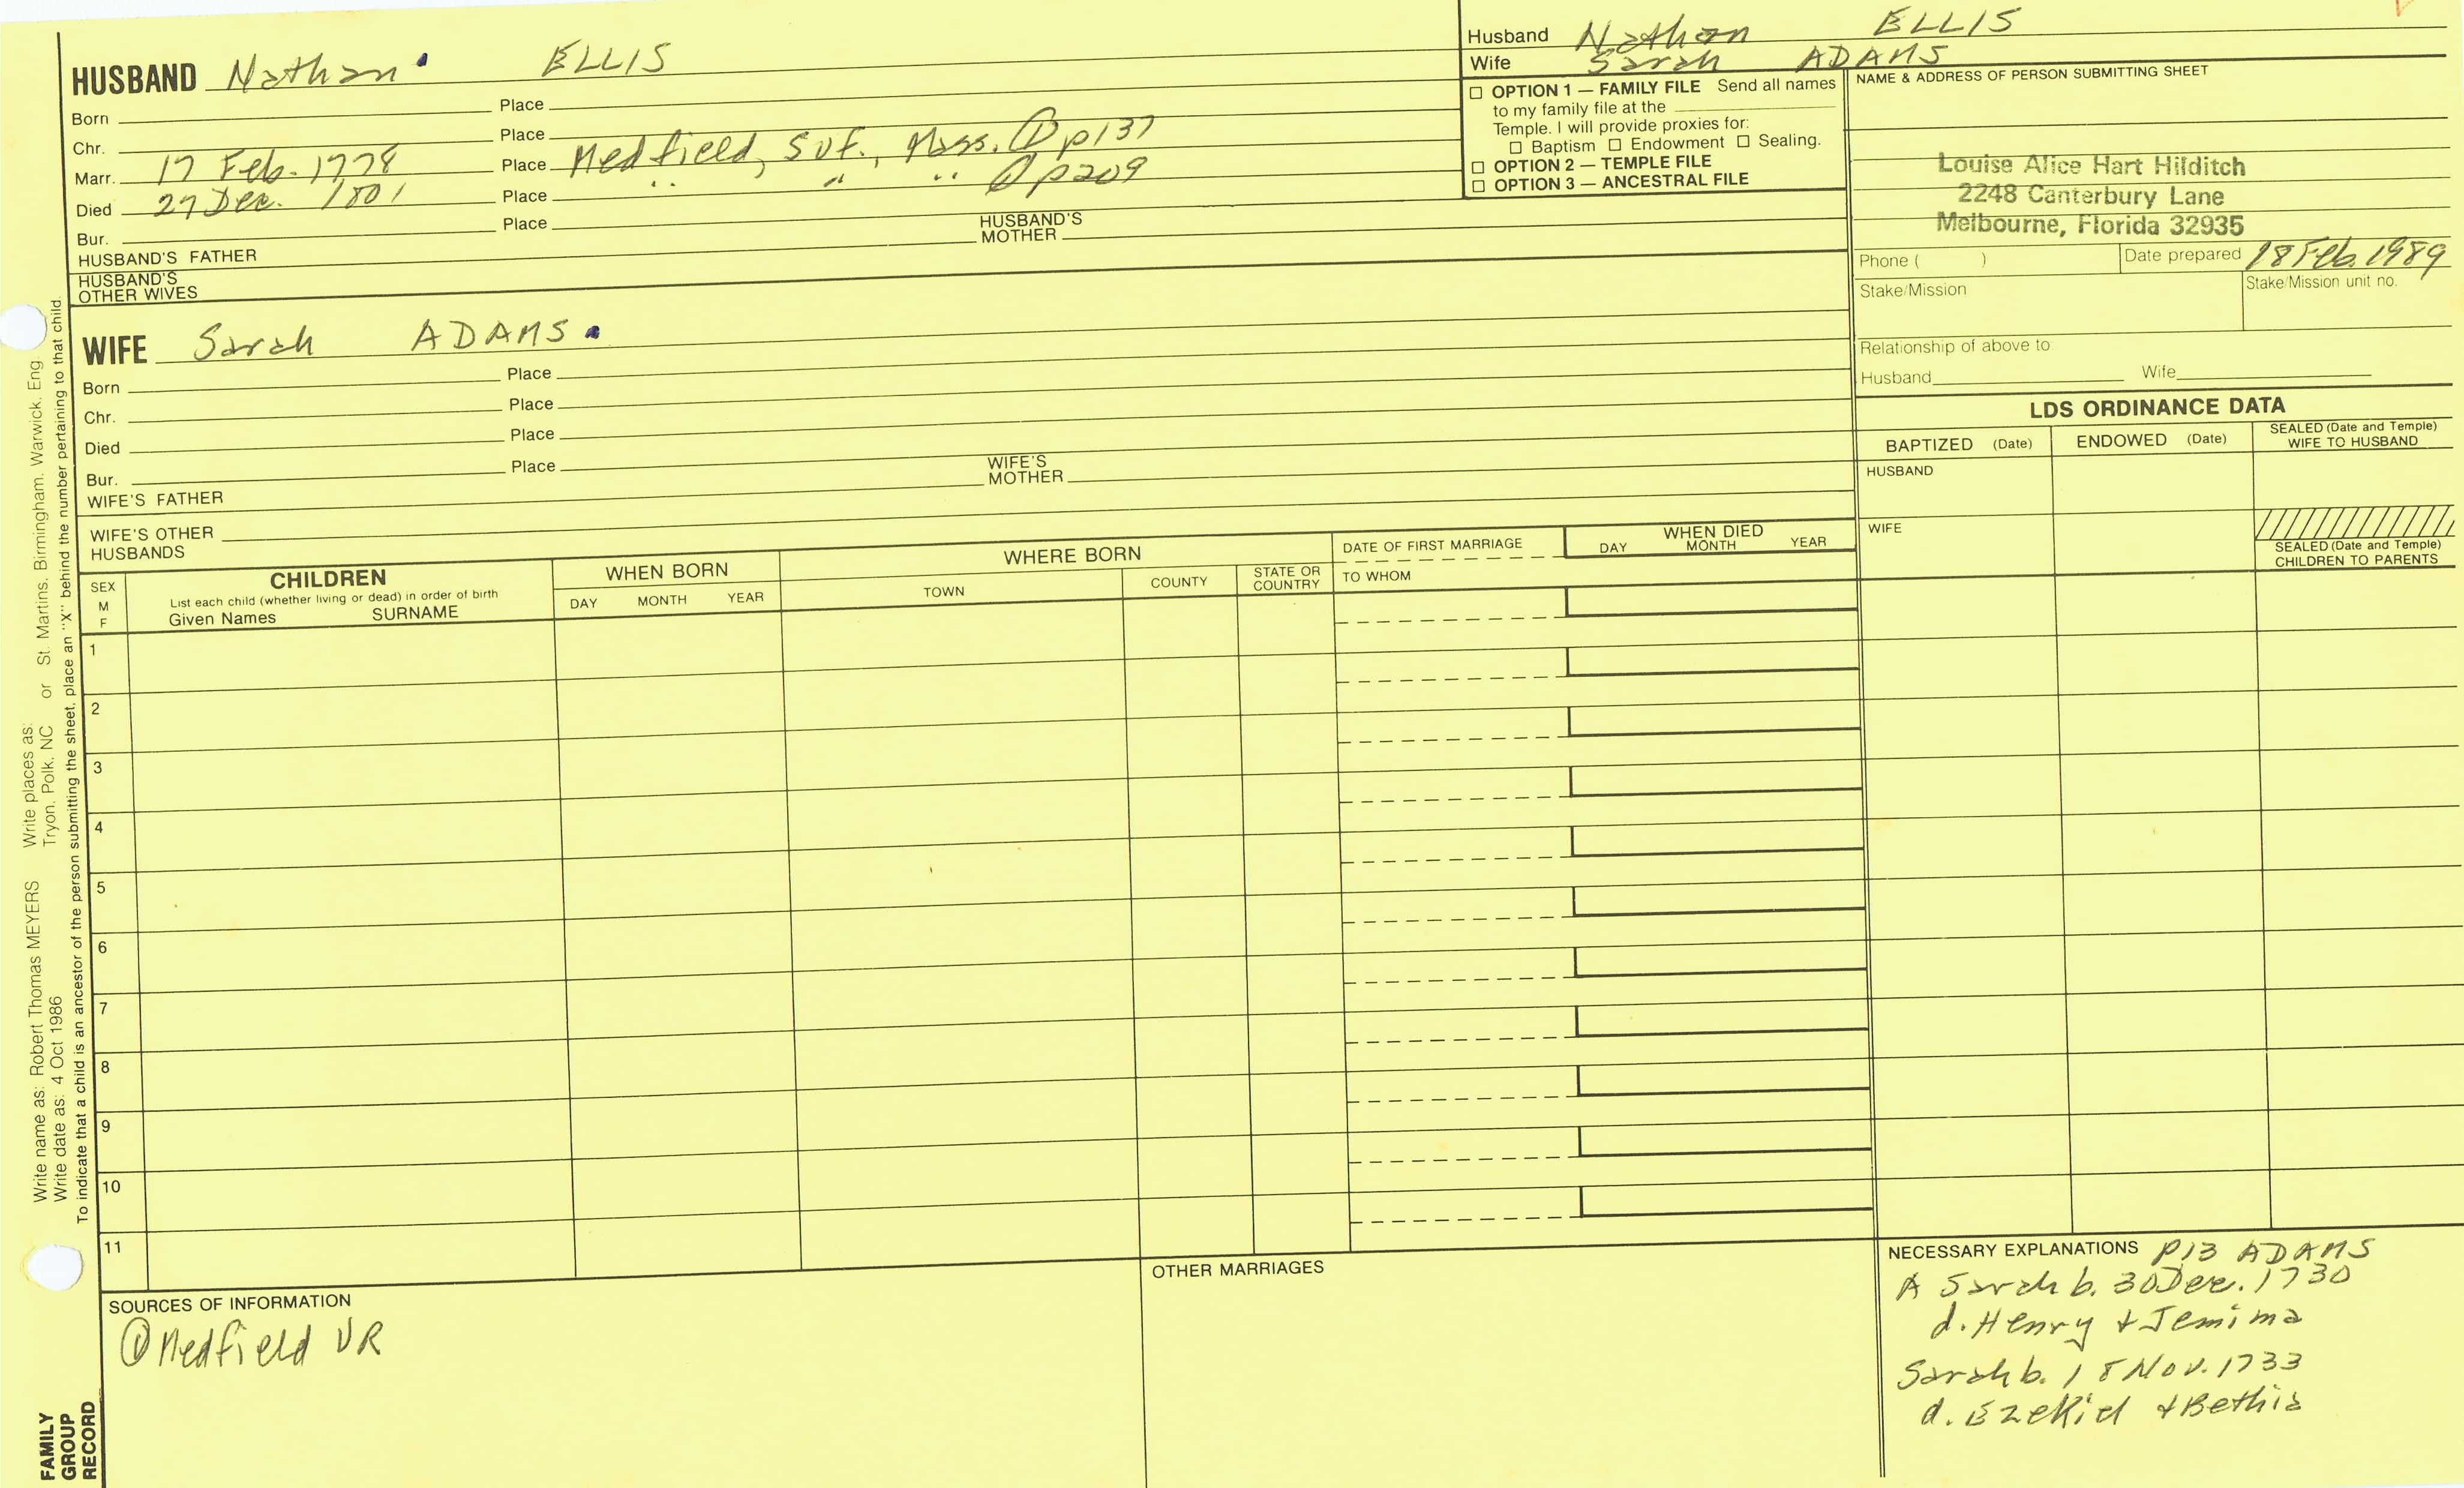 HUSBAND Nathan ELLIS
Born Place
Chr. Place
Marr. 17 Feb. 1778 Place Medfield, Suf., Mass. ① p137
Died 27 Dec. 1801 Place " " " ① p209
Bur. Place
HUSBAND'S FATHER HUSBAND'S MOTHER
HUSBAND'S OTHER WIVES
WIFE Sarah ADAMS
Born Place
Chr. Place
Died Place
Bur. Place
WIFE'S FATHER WIFE'S MOTHER
WIFE'S OTHER HUSBANDS
Husband Nathan ELLIS
Wife Sarah ADAMS
☐ OPTION 1 — FAMILY FILE Send all names
to my family file at the
Temple. I will provide proxies for:
☐ Baptism ☐ Endowment ☐ Sealing.
☐ OPTION 2 — TEMPLE FILE
☐ OPTION 3 — ANCESTRAL FILE
NAME & ADDRESS OF PERSON SUBMITTING SHEET
Louise Alice Hart Hilditch
2248 Canterbury Lane
Melbourne, Florida 32935
Phone ( ) Date prepared 18 Feb. 1989
Stake/Mission Stake/Mission unit no.
Relationship of above to
Husband Wife
LDS ORDINANCE DATA
BAPTIZED (Date) ENDOWED (Date) SEALED (Date and Temple) WIFE TO HUSBAND
HUSBAND
WIFE
SEALED (Date and Temple) CHILDREN TO PARENTS
SEX M F
CHILDREN
List each child (whether living or dead) in order of birth
Given Names SURNAME
WHEN BORN
DAY MONTH YEAR
WHERE BORN
TOWN COUNTY STATE OR COUNTRY
DATE OF FIRST MARRIAGE
TO WHOM
WHEN DIED
DAY MONTH YEAR
1
2
3
4
5
6
7
8
9
10
11
SOURCES OF INFORMATION
① Medfield VR
OTHER MARRIAGES
NECESSARY EXPLANATIONS P13 ADAMS
A Sarah b. 30 Dec. 1730
d. Henry + Jemima
Sarah b. 18 Nov. 1733
d. Ezekiel + Bethia
Write name as: Robert Thomas MEYERS Write places as:
Write date as: 4 Oct 1986 Tryon, Polk, NC or St. Martins, Birmingham, Warwick, Eng
To indicate that a child is an ancestor of the person submitting the sheet, place an "X" behind the number pertaining to that child.
FAMILY
GROUP
RECORD